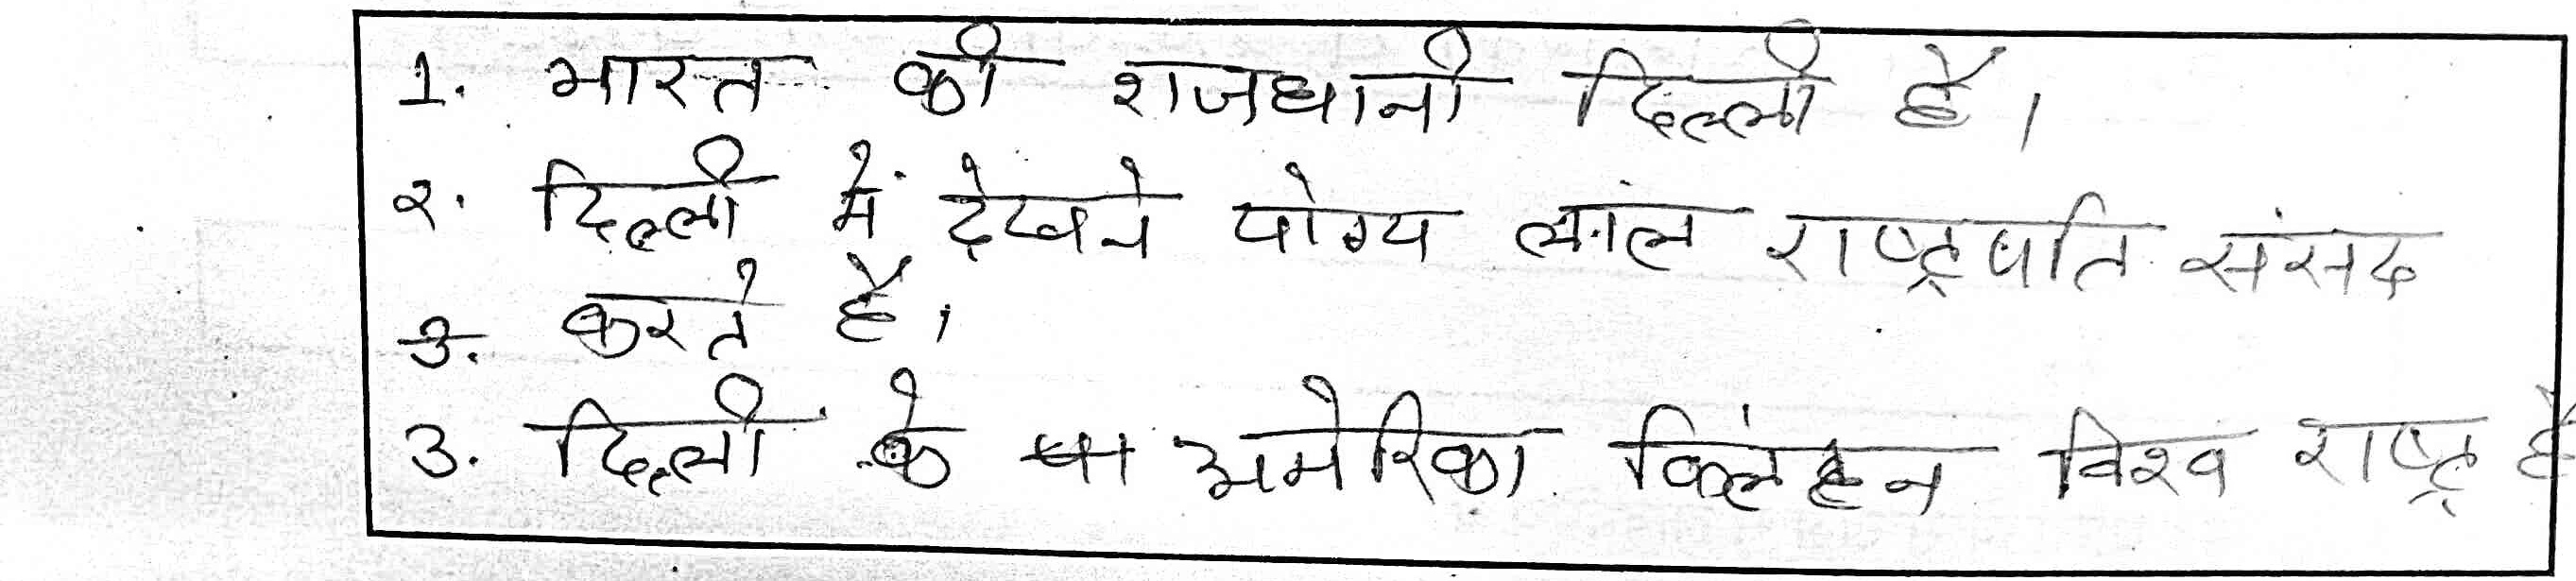 1. भारत की राजधानी दिल्ली है।
२. दिल्ली में देखने योग्य लाल राष्ट्रपति संसद
3. करते है।
3. दिल्ली के अमेरिका विश्व राष्ट्र है